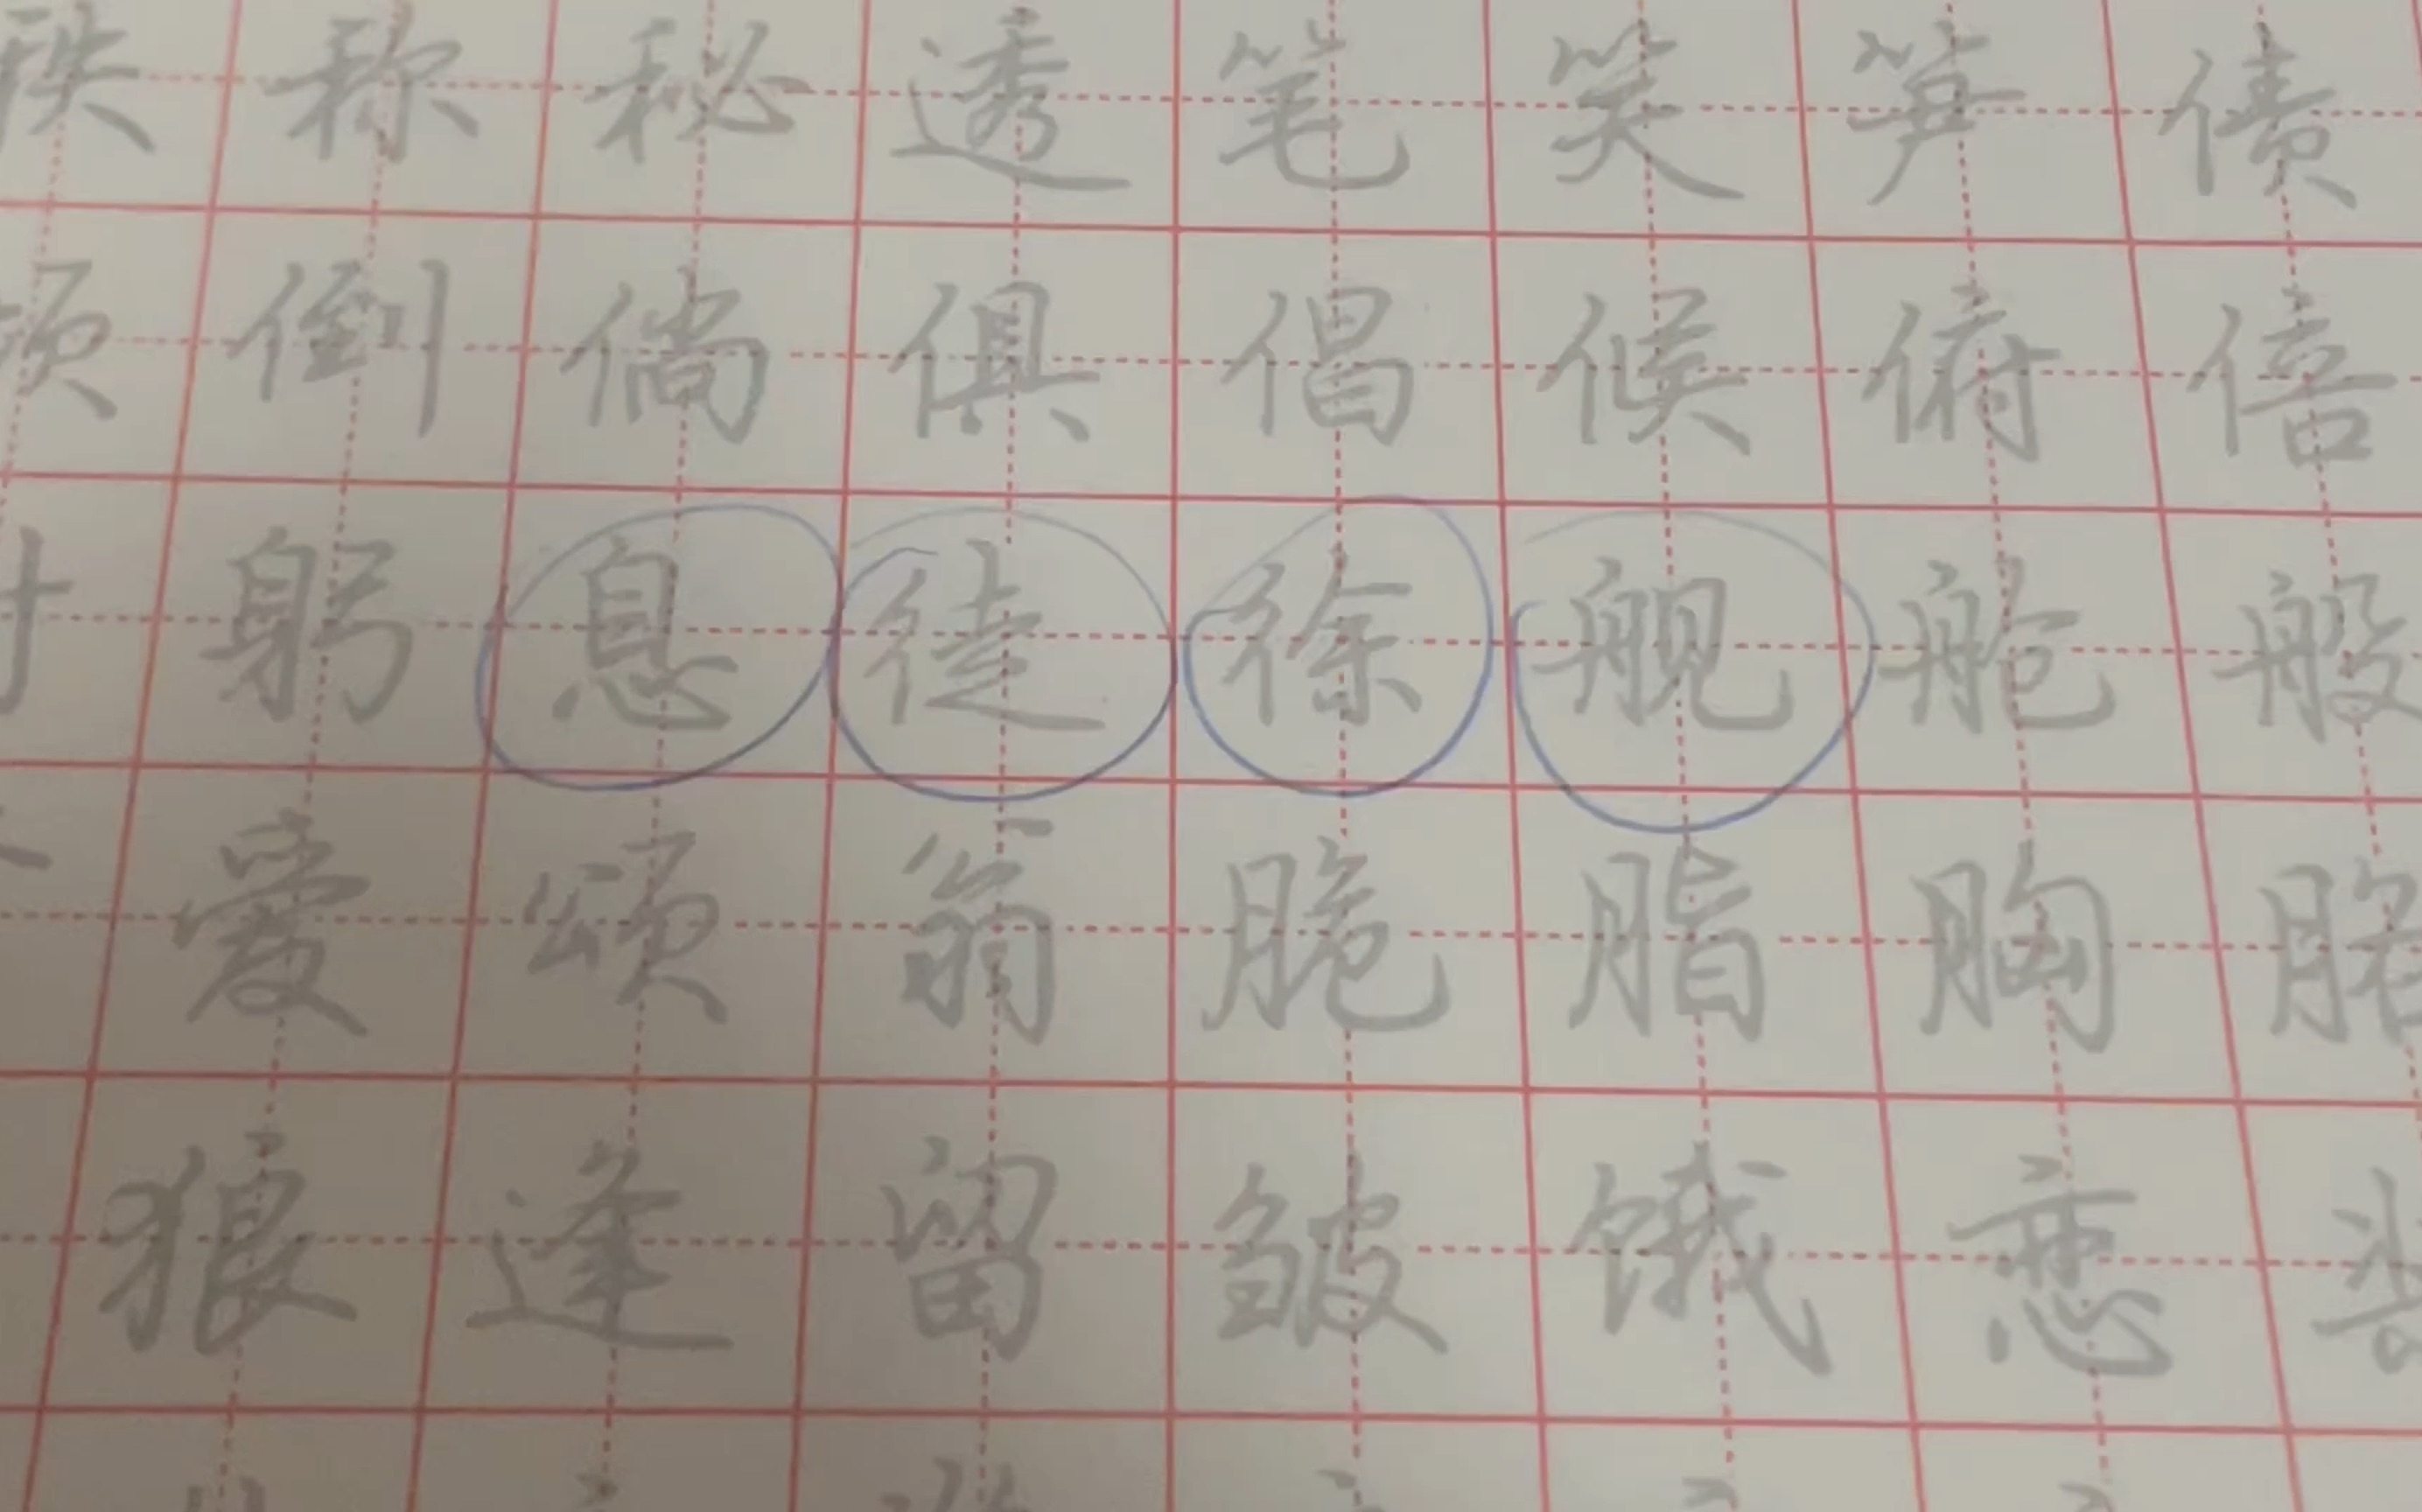 秩称秘透笔笑笋债
顷倒倘俱倡候俯倍
射躬息徒徐舰舱般
爱颂翁脆脂胸胳
狼逢留皱饿恋